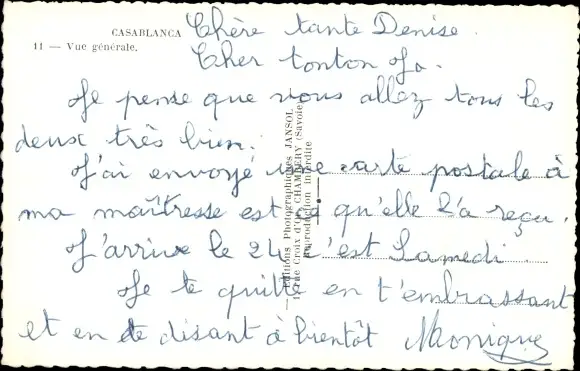 CASABLANCA
11 — Vue générale.
Chère tante Denise.
Cher tonton Jo.
Je pense que vous allez tous les
deux très bien.
J'ai envoyé une carte postale à
ma maîtresse est ce qu'elle l'a reçu.
J'arrive le 24 c'est Samedi.
Je te quitte en t'embrassant
et en te disant à bientôt Monique
Editions Photographiques JANSOL
rue Croix d'Or CHAMBÉRY (Savoie)
Reproduction interdite